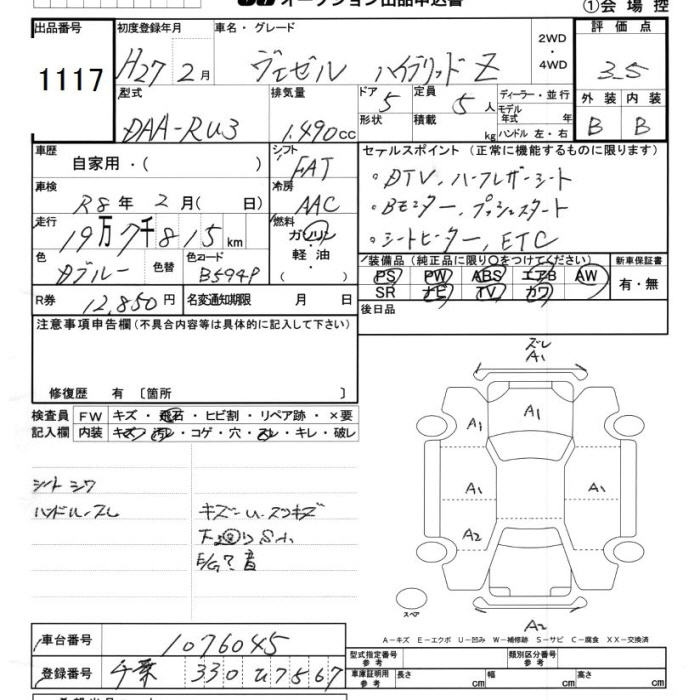 オークション出品申込書 ①会場控
出品番号 初度登録年月 車名・グレード 2WD・4WD 評価点
1117 H27 2月 ヴェゼル ハイブリッド Z 3.5
型式 排気量 ドア 5 定員 5人 ディーラー・並行 外装 内装
DAA-RU3 1.490cc 形状 積載 kg モデル年式 年 ハンドル 左・右 B B
車歴 自家用・( ) シフト FAT セールスポイント (正常に機能するものに限ります)
車検 R8年 2月( 日) 冷房 AAC 。DTV, ハーフレザーシート
走行 19万7千815km 燃料 ガソリン・軽油・( ) 。Bモニター, プッシュスタート
。シートヒーター, ETC
色 ブルー 色替 色コード B594P 装備品 (純正品に限り○をつけてください) 新車保証書
PS PW ABS エアB AW 有・無
SR ナビ TV カワ
R券 12,850円 名変通知期限 月 日 後日品
注意事項申告欄(不具合内容等は具体的に記入して下さい)
修復歴 有 〔箇所 〕
検査員 FW キズ・飛石・ヒビ割・リペア跡・×要
記入欄 内装 キズ・汚レ・コゲ・穴・スレ・キレ・破レ
ズレ
A1
A1
A1
A1 A1
A2
A2
スペア
シートシワ
ハンドルスレ キズ・U・スコキズ
下廻りS小
E/G?音
A-キズ E-エクボ U-凹み W-補修跡 S-サビ C-腐食 XX-交換済
車台番号 1076045 型式指定番号 参考 類別区分番号 参考
登録番号 千葉 330 ひ7567 車庫証明用 参考 長さ cm 幅 cm 高さ cm